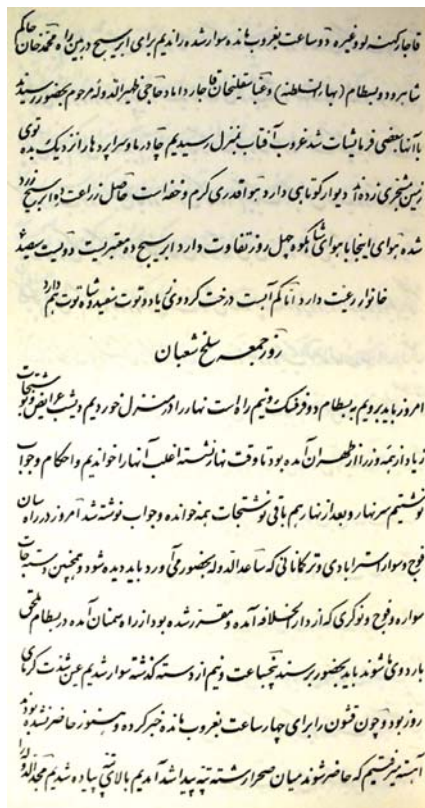 قاجار کنه لو وغیره دو ساعت بغروب مانده سوار شده راندیم برای ابرسیج در بین راه محمد خان حاکم
شاهرود و بسطام (بهاءالسلطنه) وعباسقلیخان قاجار داماد حاجی ظهیرالدوله مرحوم بحضور رسیدند
با آنها بعضی فرمایشات شد غروب آفتاب بمنزل رسیدیم چادر ما و سراپرده را نزدیک بده توی
زمین مشجری زده اند دیوار کوتاهی دارد هوا قدری گرم و خفه است حاصل زراعت ده ابرسیج زرد
شده هوای اینجا با هوای شاهکوه چهل روز تفاوت دارد ابرسیج ده معتبریست دویست سیصد
خانوار رعیت دارد اما کم آبست درخت گردوی زیاد و توت سفید و شاه توت هم دارد
روز جمعه سلخ شعبان
امروز باید برویم به بسطام دو فرسنگ و نیم راه است نهار را در منزل خوردیم دیشب عرایض و نوشتجات
زیاد از همه وزرا از طهران آمده بود تا وقت نهار نشسته اغلب آنها را خواندیم و احکام و جواب
نوشتیم سر نهار و بعد از نهار هم باقی نوشتجات همه خوانده و جواب نوشته شد امروز در راه سان
فوج و سوار استرابادی و ترکمانانی که ساعدالدوله بحضور می آورد باید دیده شود و همچنین دستجات
سواره و فوج و نوکری که از دارالخلافه آمده و مقرر شده بود از راه سمنان آمده در بسطام ملحق
باردوی ما شوند باید بحضور برسند پنجساعت و نیم از دسته گذشته سوار شدیم عین شدت گرمای
روز بود و چون قشون را برای چهار ساعت بغروب مانده خبر کرده و هنوز حاضر نشده بودند
آهسته میرفتیم که حاضر شوند میان صحرا رشته تپه پیدا شد آمدیم بالای تپه پیاده شدیم مجدالدوله را